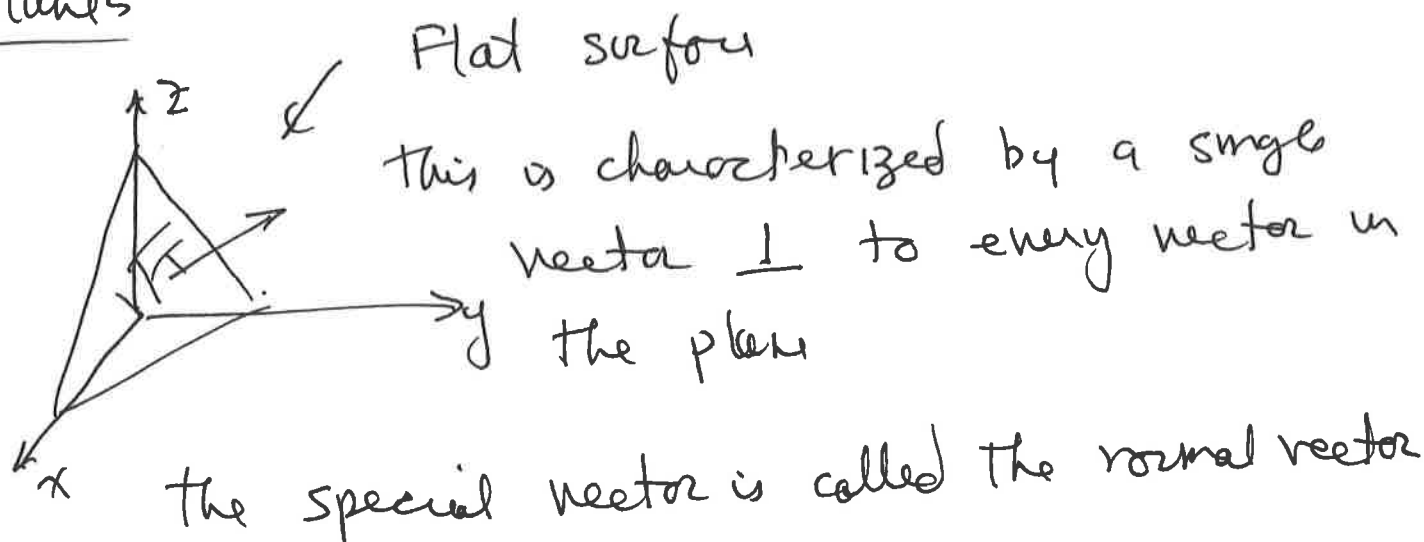 Planes
Flat surface
z
This is characterized by a single
vector ⊥ to every vector in
y the plane
x
the special vector is called the normal vector